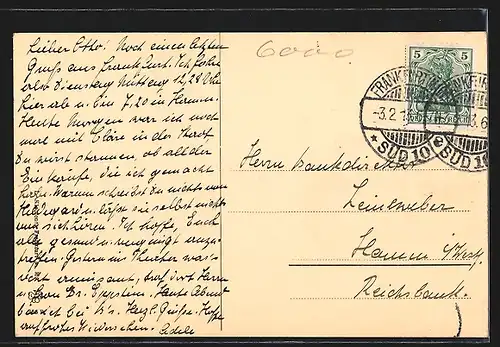 6000
Lieber Otto! Noch einen letzten
Gruss aus Frankfurt. Ich fahre
also Dienstag Mittag 12,28 Uhr
hier ab u. bin 7.20 in Hamm.
Heute Morgen war ich noch
mal mit Cläre in der Stadt
Du wirst staunen, ob all der
Einkäufe, die ich gemacht
habe. Warum schreibst Du nicht von
Hildegard u. lässt sie selbst nichts
von sich hören. Ich hoffe, Euch
alle gesund u. vergnügt anzu-
treffen. Gestern im Theater was
recht amüsant, traf dort Herrn
u. Frau Dr. Eppstein. Heute Abend
bei
Herzl. Grüsse. Hoffe
auf frohes Wiedersehen. Adele
5 5
FRANKFURT
-3.2.1
* SÜD 10 *
SÜD 10
Herrn Bankdirektor
Leineweber
Hamm i/West.
Reichsbank.